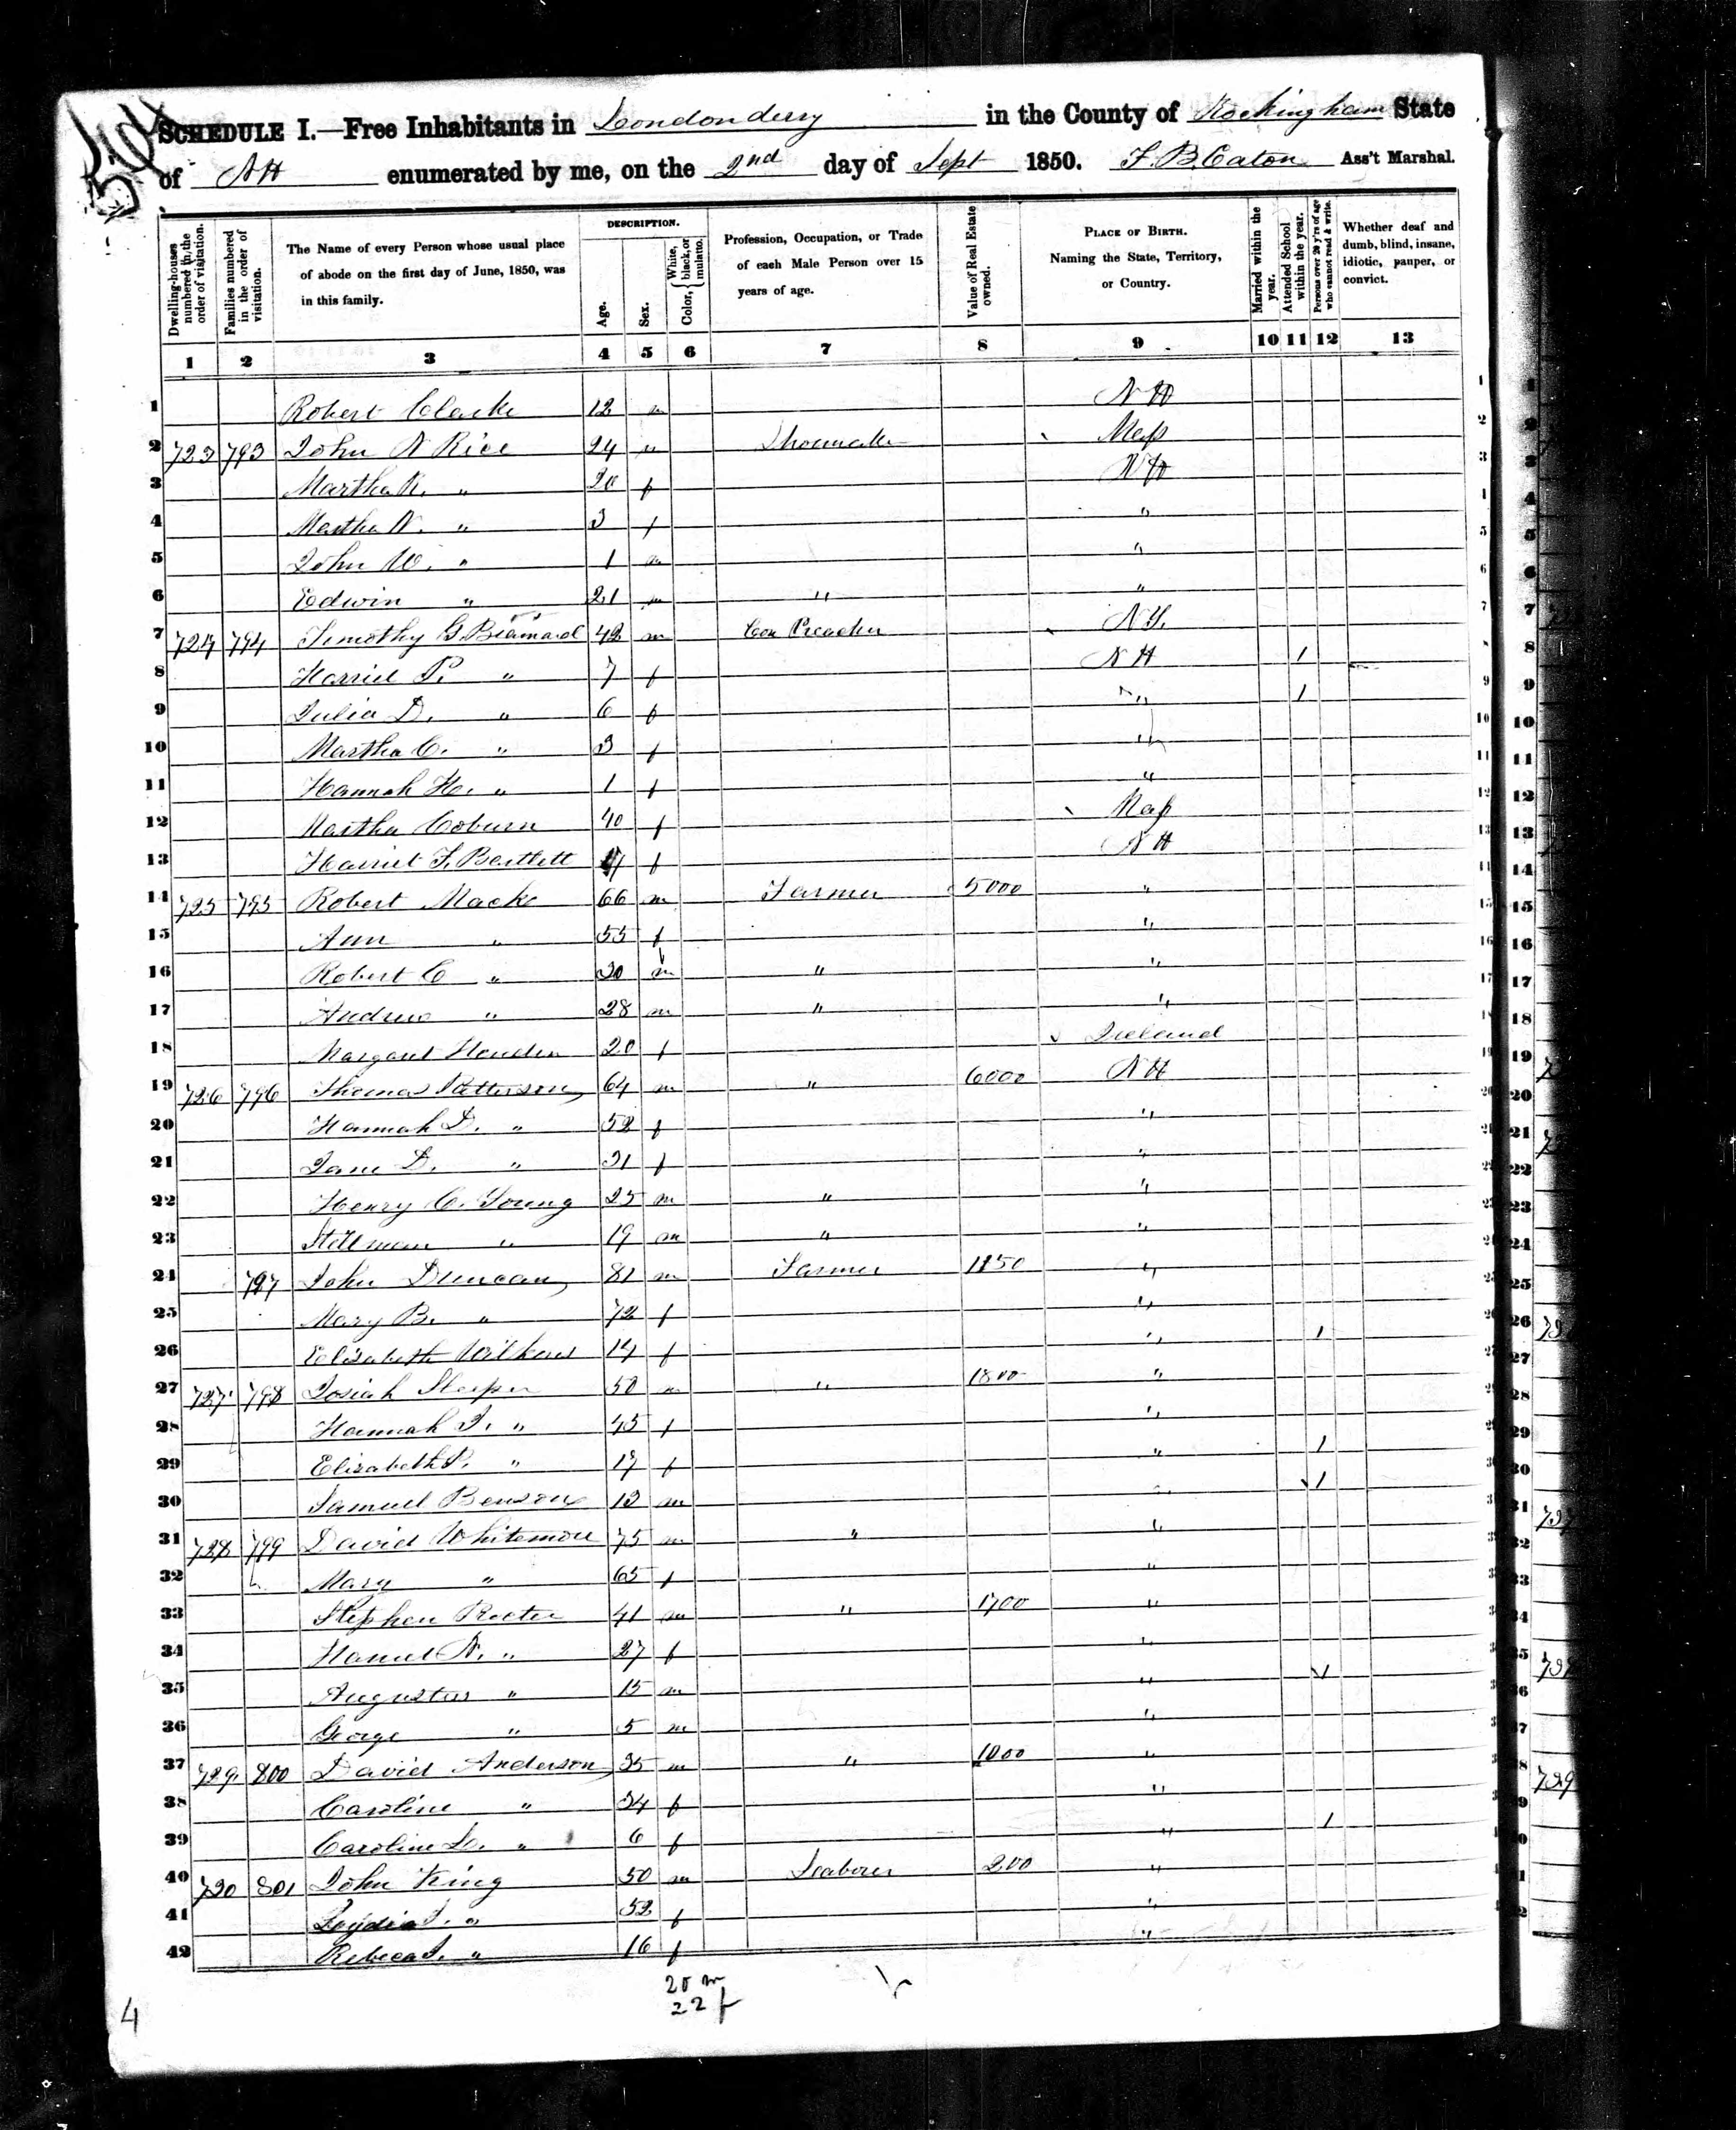 504
SCHEDULE I.—Free Inhabitants in Londonderry in the County of Rockingham State
of NH enumerated by me, on the 2nd day of Sept 1850. F. B. Eaton Ass't Marshal.
Dwelling-houses numbered in the order of visitation.
Families numbered in the order of visitation.
The Name of every Person whose usual place of abode on the first day of June, 1850, was in this family.
DESCRIPTION.
Age.
Sex.
Color, { White, black, or mulatto.
Profession, Occupation, or Trade of each Male Person over 15 years of age.
Value of Real Estate owned.
PLACE OF BIRTH. Naming the State, Territory, or Country.
Married within the year.
Attended School within the year.
Persons over 20 y'rs of age who cannot read & write.
Whether deaf and dumb, blind, insane, idiotic, pauper, or convict.
1 2 3 4 5 6 7 8 9 10 11 12 13
1 Robert Clarke 12 m NH
2 723 793 John N Rice 24 m Shoemaker Mass
3 Martha K. " 20 f NH
4 Martha N. " 3 f "
5 John W. " 1 m "
6 Edwin " 21 m " "
7 724 794 Timothy G. Brainard 42 m Con Preacher NY.
8 Harriet P. " 7 f NH 1
9 Julia D. " 6 f " 1
10 Martha C. " 3 f "
11 Hannah H. " 1 f "
12 Martha Coburn 40 f Mass
13 Harriet F. Bartlett f NH
14 725 795 Robert Mack 66 m Farmer 5000 "
15 Ann " 55 f "
16 Robert C " 30 m " "
17 Andrew " 28 m " "
18 Margaret 20 f Ireland
19 726 796 Thomas Patterson 64 m " 6000 NH
20 Hannah D. " 52 f "
21 Jane D. " 31 f "
22 Henry C. Young 25 m " "
23 Stillman " 19 m " "
24 797 John Duncan 81 m Farmer 1150 "
25 Mary B. " 72 f "
26 Elizabeth Wilkins 14 f " 1
27 727 798 Josiah Sleeper 50 m " 1800 "
28 Hannah J. " 45 f "
29 Elizabeth P. " 17 f " 1
30 Samuel Benson 13 m " 1
31 728 799 David Whitemore 75 m " "
32 Mary " 65 f "
33 Stephen Reeter 41 m " 1700 "
34 Harriet N. " 27 f "
35 Augustus " 15 m " 1
36 George " 5 m "
37 729 800 David Anderson 35 m " 1000 "
38 Caroline " 34 f "
39 Caroline L. " 6 f " 1
40 730 801 John King 50 m Laborer 200 "
41 Lydia " 52 f "
42 Rebecca " 16 f "
20 m
22 f
4